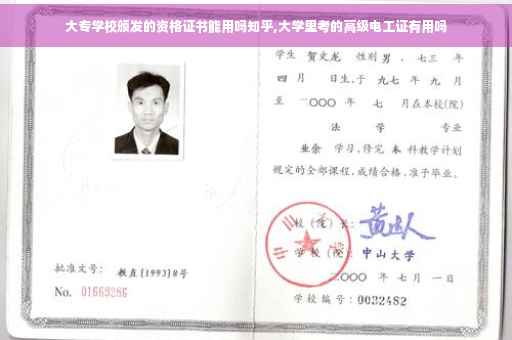 大专学校颁发的资格证书能用吗知乎,大学里考的高级电工证有用吗
学生 贺文龙 性别 男 、七三 年
四 月 日生,于 九七 年 九 月
至 二〇〇〇 年 七 月在本校(院)
法 学 专业
业余 学习,修完 本 科教学计划
规定的全部课程,成绩合格,准予毕业。
校 (院) 长:
学 校 (院): 中山大学
二〇〇〇 年 七 月 一 日
批准文号: 教直(1993)8号
No. 01669286
学校编号: 0032482